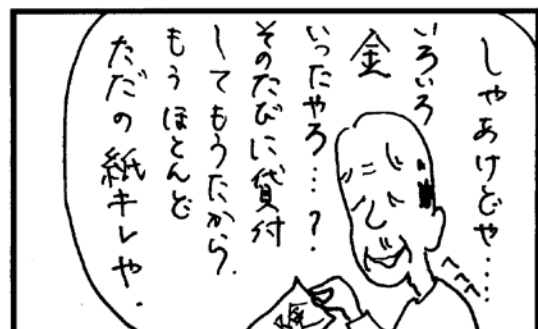 しやあけどや……
いろいろ
金
いったやろ…？
そのたびに貸付
してもうたから、
もうほとんど
ただの紙キレや．
へへへ